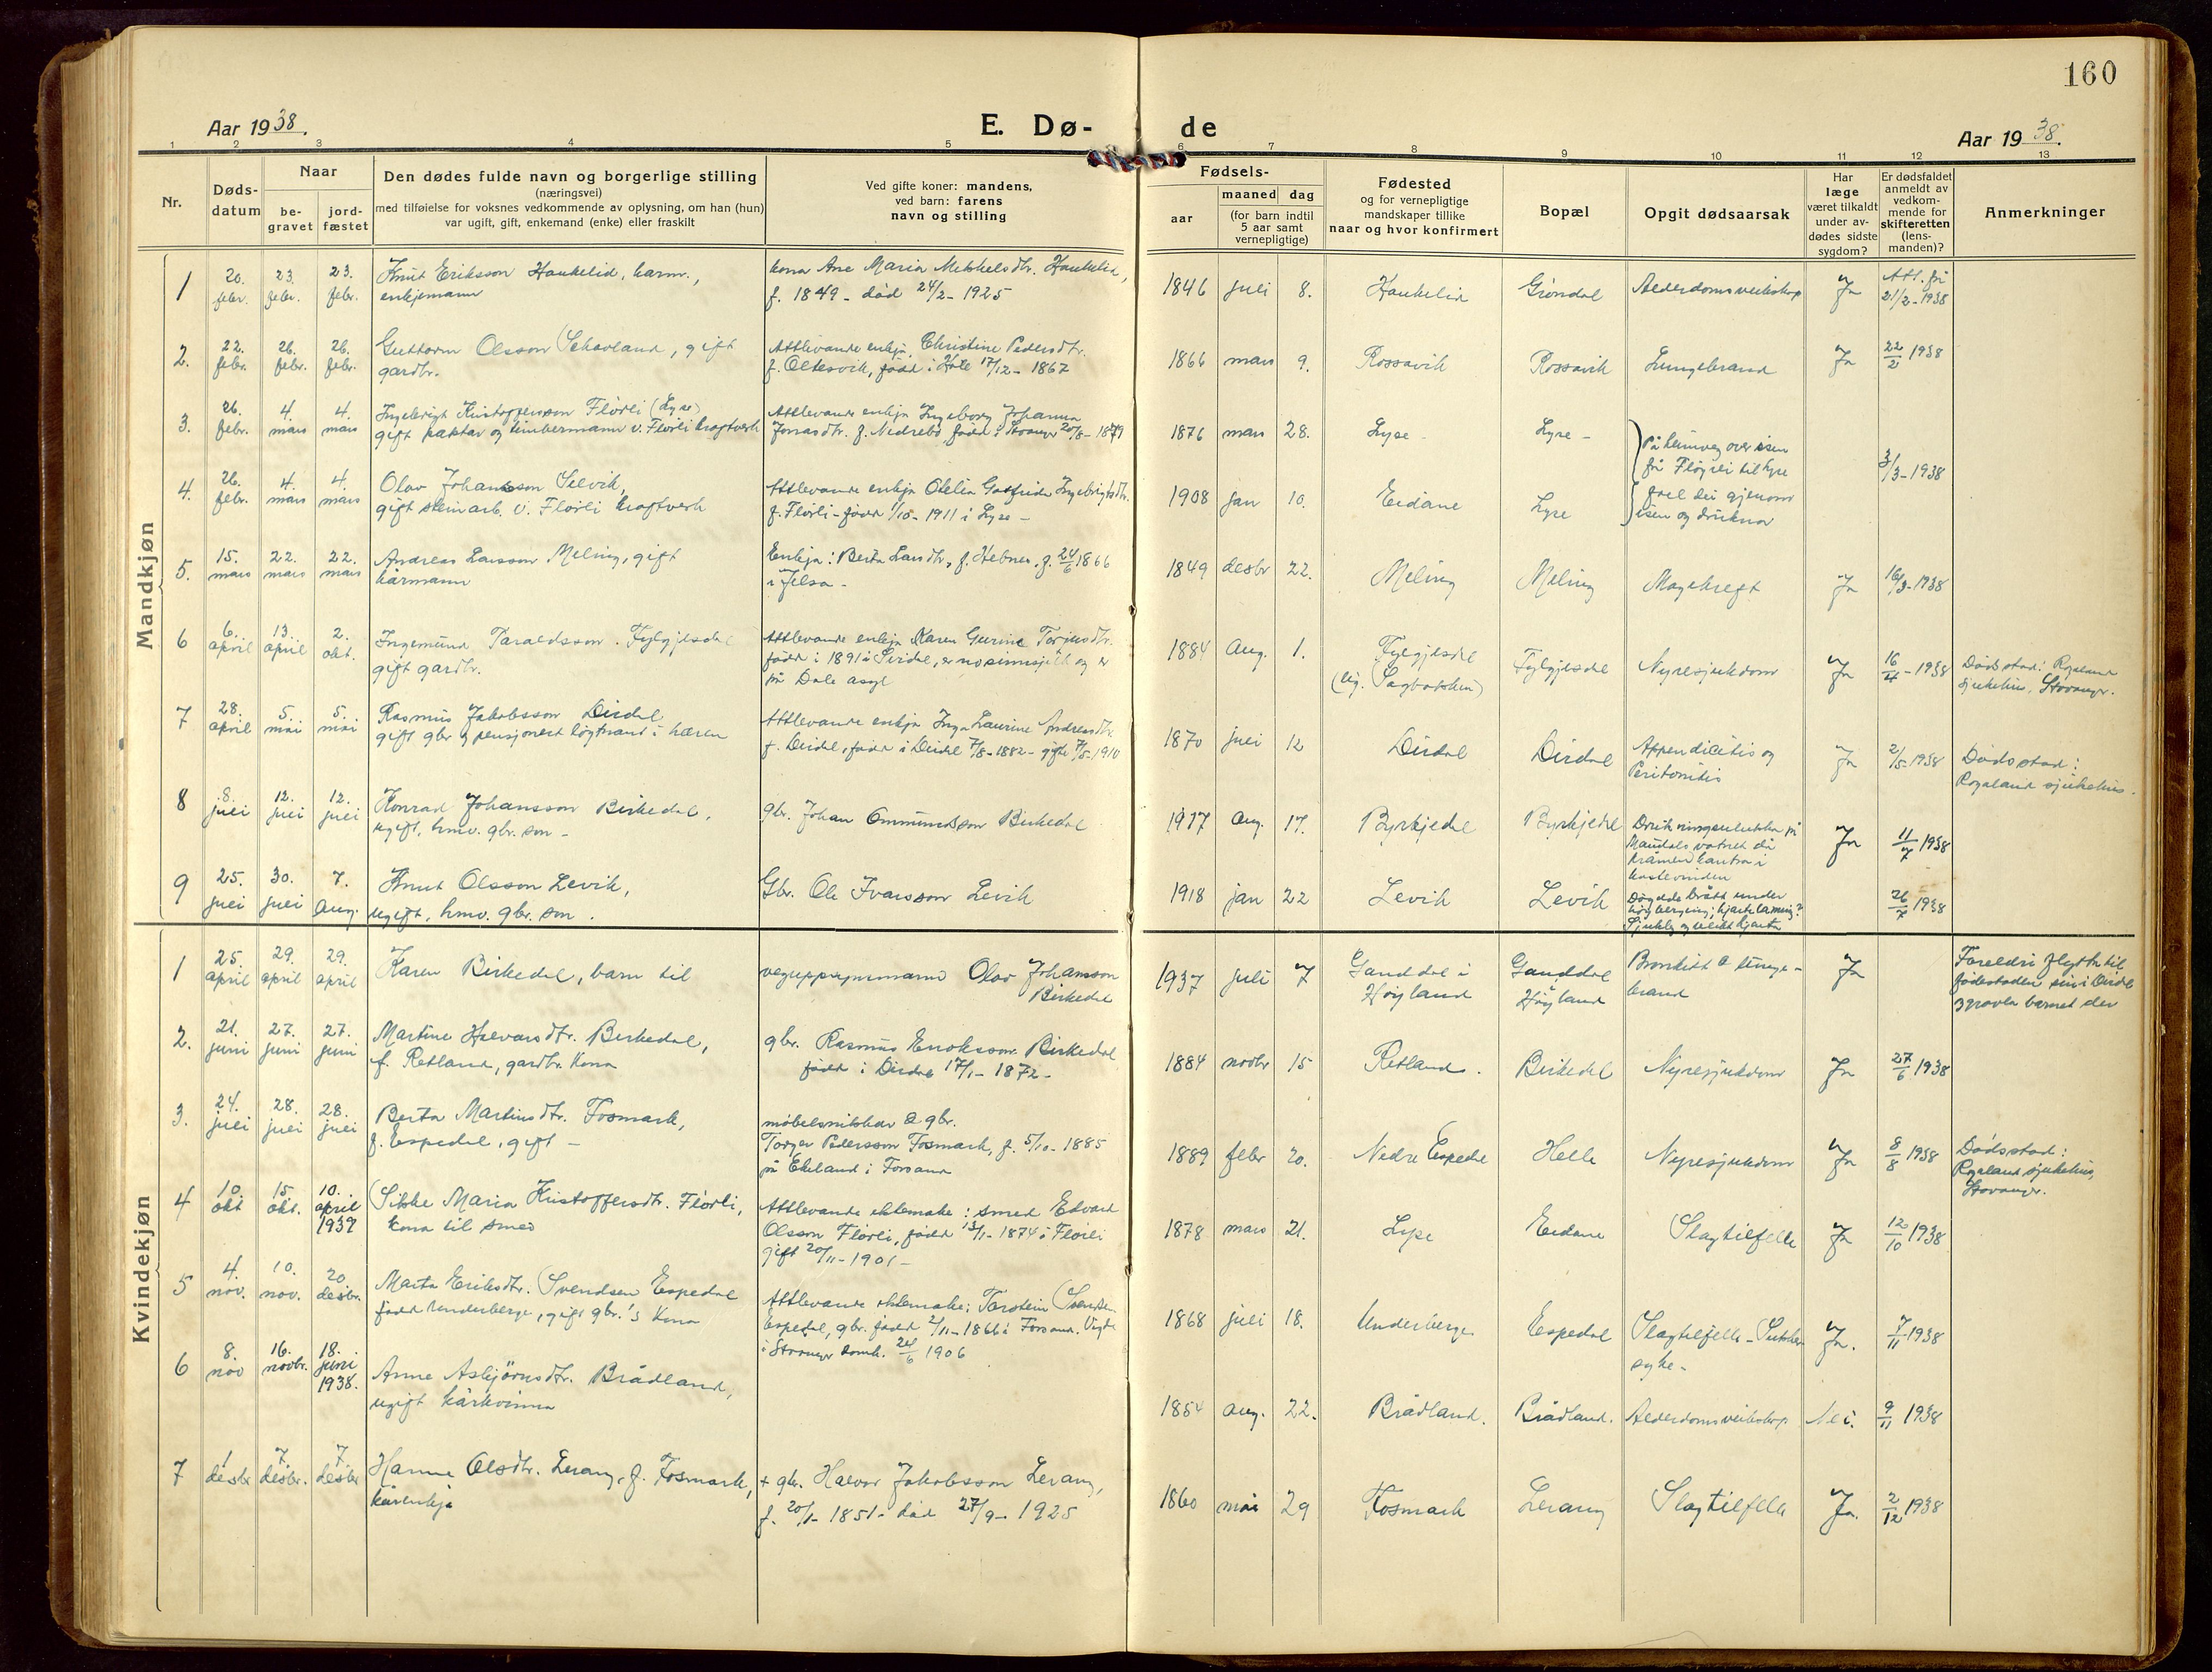 160
Aar 1938.
E. Dø-
de
Aar 1938.
1 2 3 4 5 6 7 8 9 10 11 12 13
Nr.
Døds-
datum
Naar
be-
gravet
jord-
fæstet
Den dødes fulde navn og borgerlige stilling
(næringsvei)
med tilføielse for voksnes vedkommende av oplysning, om han (hun)
var ugift, gift, enkemand (enke) eller fraskilt
Ved gifte koner: mandens,
ved barn: farens
navn og stilling
Fødsels-
aar
maaned dag
(for barn indtil
5 aar samt
vernepligtige)
Fødested
og for vernepligtige
mandskaper tillike
naar og hvor konfirmert
Bopæl
Opgit dødsaarsak
Har
læge
været tilkaldt
under av-
dødes sidste
sygdom?
Er dødsfaldet
anmeldt av
vedkom-
mende for
skifteretten
(lens-
manden)?
Anmerkninger
Mandkjøn
1 20. febr. 23. febr. 23. febr. Knut Eriksson Haukelid,
enkjemann
kona Ane Maria Haukelid,
f. 1849 - død 24/2 - 1925
1846 juli 8. Haukelid Grøndal Alderdomsveikskap Ja Att. frå
21/2 - 1938
2. 22. febr. 26. febr. 26. febr. Guttorm Olsson Schovland, gift
gardbr.
Attlevande enkja, Christine Pedersdtr.
f. Oltesvik, fødd i Hole 17/12 - 1867
1866 mars 9. Rossavik Rossavik Lungebrand Ja 22/2 1938
3. 26. febr. 4. mars 4. mars Ingebrigt Kristoffersson Flørli (Lyse)
gift paktar og timbermann v. Flørli kraftverk
Attlevande enkja Ingeborg Johanna
Jonasdtr. f. Nedrebø fødd i Stavanger 20/8 - 1879
1876 mars 28. Lyse - Lyse -
På heimveg over isen
frå Fløyrli til Lyse
fall dei gjenom
isen og drukna
3/3 - 1938
4. 26. febr. 4. mars 4. mars Olav Johansson Selvik,
gift steinarb. v. Flørli kraftverk
Attlevande enkja Otelia Ingebrigtsdtr.
f. Flørli - fødd 1/10 - 1911 i Lyse -
1908 jan 10. Eidane Lyse
5. 15. mars 22. mars 22. mars Andreas Larsson Meling, gift
kårmann
Enkja: Berta Larsdtr, f. Hebnes, f. 24/6 1866
i Jelsa -
1849 desbr 22. Meling Meling Magekreft Ja 16/3 - 1938
6 6. april 13. april 2. okt. Ingemund Taraldsson Fylgjesdal
gift gardbr.
Attlevande enkja Karen Gurine Torjusdtr.
fødd i 1891 i er no sinnssjuk og er
på Dale asyl
1884 Aug. 1. Fylgjesdal
Fylgjesdal Nyresjukdom Ja 16/4 - 1938 Dødsstad: Rogaland
sjukehus, Stavanger.
7 28. april 5. mai 5. mai Rasmus Jakobsson Dirdal
gift gbr og pensjonert løytnant i hæren
Attlevande enkja Inga Laurine Andreasdtr.
f. Dirdal, fødd i Dirdal 7/8 - 1882 - gifte 7/5 - 1910
1870 juli 12 Dirdal Dirdal Appendicitis og
Peritonitis
Ja 2/5 - 1938 Dødsstad:
Rogaland sjukehus.
8 8. juli 12. juli 12. juli Konrad Johansson Birkedal,
ugift, hmv. gbr. son -
gbr. Johan Ommundsson Birkedal
1917 Aug. 17. Byrkjedal Byrkjedal Drukningsulukka på
Maudals vatnet då
kantra i
kastevinden
Ja 11/7 1938
9 25. juli 30. juli 7. Aug. Knut Olsson Levik,
ugift, hmv. gbr. son.
Gbr. Ole Ivarsson Levik
1918 jan 22 Levik Levik Døydde brått under
høyberging; hjartelaming?
Sjukleg og veikt hjarta
26/7 1938
Kvindekjøn
1 25. april 29. april 29. april Karen Birkedal, barn til
veguppsynsmann Olav Johansson
Birkedal
1937 juli 7 Ganddal i
Høyland
Ganddal
Høyland
Bronkitt & lunge-
brand
Ja Foreldri flytte til
fødestaden sin i Dirdal
gravla barnet der
2. 21. juni 27. juni 27. juni Martine Halvarsdtr. Berkedal,
f. Retland, gardbr. kona
gbr. Rasmus Enoksson Birkedal
fødd i Dirdal 17/1 - 1872 -
1884 novbr 15 Retland. Birkedal Nyresjukdom Ja 27/6 1938
3. 24. juli 28. juli 28. juli Berta Martinsdtr. Fosmark,
f. Espedal, gift -
møbelsnikkar & gbr.
Torger Pedersson Fosmark, f. 5/10 - 1885
på Ekeland i Forsand
1889 febr 20. Nedre Espedal Helle Nyresjukdom Ja 8/8 1938 Dødsstad:
Rogaland sjukehus,
Stavanger.
4 10. okt 15. okt. 10. april 1939 Sikke Maria Kristoffersdtr. Flørli,
kona til smed
Attlevande ektemake: smed Edvard
Olsson Flørli, fødd 13/1 - 1874 i Flørli
gift 20/11 - 1901 -
1878 mars 21. Lyse Eidane Slagtilfelle Ja 12/10 1938
5 4. nov. 10. nov. 20. desbr. Marta Eriksdtr. Svendsen Espedal
fødd Underberge, gift gbr.'s kona
Attlevande ektemake: Torstein Svendsen
Espedal, gbr. fødd 2/11 - 1866 i Forsand. Vigde
i Stavanger domk. 24/6 1906
1868 juli 18. Underberge Espedal Slagtilfelle - Sukker-
syke -
Ja. 7/11 1938
6 8. nov 16. novbr. 18. juni 1938. Anne Asbjørnsdtr. Brådland,
ugift kårkvinna
1854 aug. 22. Brådland. Brådland. Alderdomsveikskap Nei. 9/11 1938
7 1 desbr 7. desbr. 7. desbr Hanne Olsdtr. Lerang, f. Fosmark,
kårenkje
+ gbr. Halvor Jakobsson Lerang,
f. 20/1 - 1851 - død 27/9 - 1925
1860 mai 29 Fosmark Lerang Slagtilfelle Ja. 2/12 1938